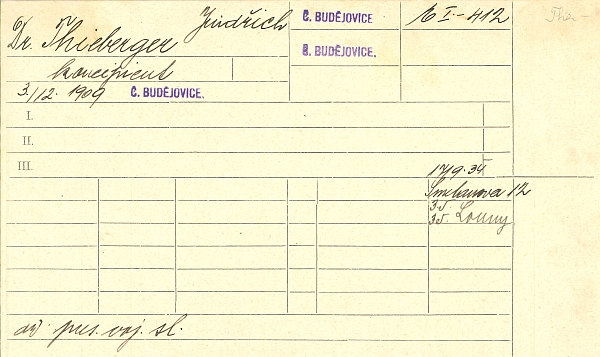 Dr. Thieberger Jindřich Č. BUDĚJOVICE I-412 The-
Č. BUDĚJOVICE.
koncipient
3./12. 1909 Č. BUDĚJOVICE.
I.
II.
III.
17/9.34
Smetanova 12
35. Louny
pres. voj. sl.